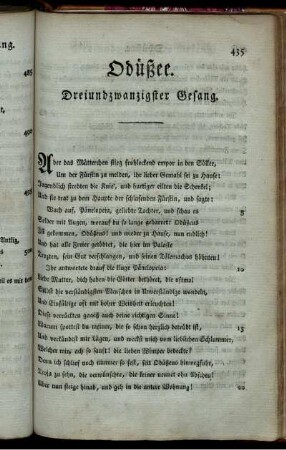 435
Odüßee.
Dreiundzwanzigster Gesang.
Aber das Mütterchen stieg frohlockend empor in den Söller,
Um der Fürstin zu melden, ihr lieber Gemahl sei zu Hause:
Jugendlich strebten die Knie', und hurtiger eilten die Schenkel;
Und sie trat zu dem Haupte der schlafenden Fürstin, und sagte:
Wach auf, Pänelopeia, geliebte Tochter, und schau es 5
Selber mit Augen, worauf du so lange geharret: Odüßeus
Ist gekommen, Odüßeus! und wieder zu Hause, nun endlich!
Und hat alle Freier getödtet, die hier im Palaste
Trozten, sein Gut verschlangen, und seinen Tälemachos höhnten!
Ihr antwortete drauf die kluge Pänelopeia: 10
Liebe Mutter, dich haben die Götter bethöret, die
Selbst die verständigsten Menschen in Unverständige wandeln,
Und Einfältige oft mit hoher Weisheit erleuchten!
Diese verrückten gewiß auch deine richtigen Sinne!
Warum spottest du meiner, die so schon herzlich betrübt ist, 15
Und verkündest mir Lügen, und weckst mich vom lieblichen Schlummer,
Welcher mir, ach so sanft! die lieben Wimper bedeckte?
Denn ich schlief noch nimmer so fest, seit Odüßeus hinwegfuhr,
Troja zu sehn, die verwünschte, die keiner nennet ohn Abscheu!
Aber nun steige hinab, und geh in die untere Wohnung! 20